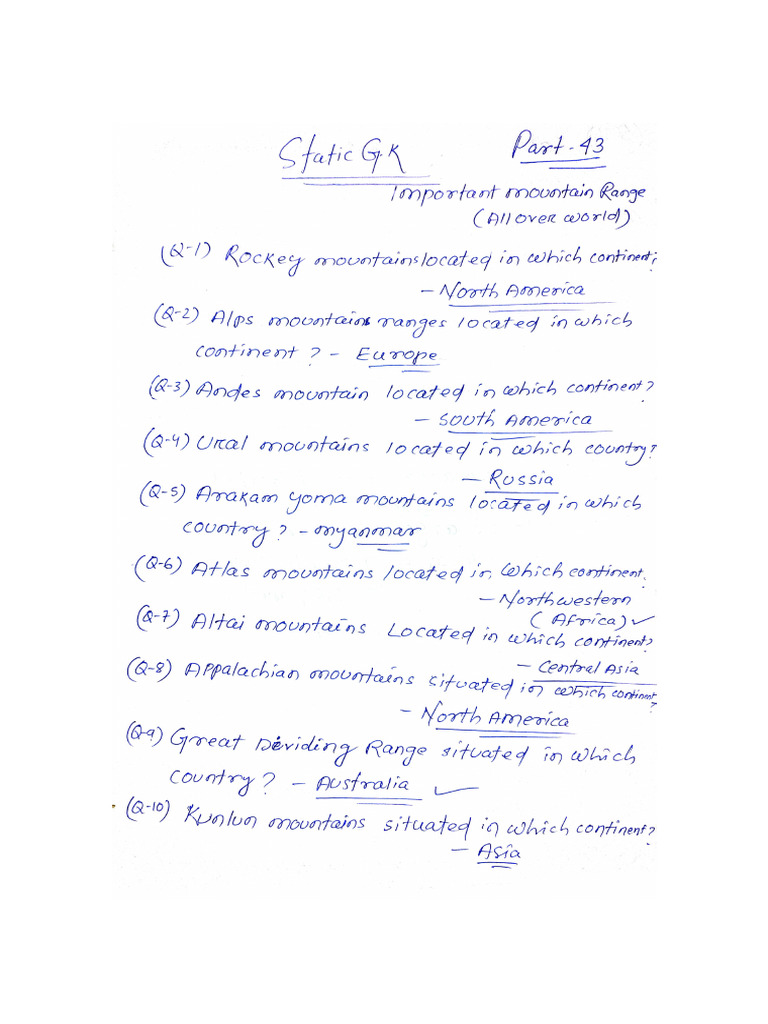 Static GK Part-43
Important mountain Range
(All over world)
(Q-1) Rockey mountains located in which continent?
- North America
(Q-2) Alps mountains ranges located in which
continent? - Europe
(Q-3) Andes mountain located in which continent?
- South America
(Q-4) Ural mountains located in which country?
- Russia
(Q-5) Arakam yoma mountains located in which
country? - myanmar
(Q-6) Atlas mountains located in which continent.
- Northwestern
(Africa) ✓
(Q-7) Altai mountains Located in which continent?
- Central Asia
(Q-8) Appalachian mountains situated in which continent?
- North America
(Q-9) Great Dividing Range situated in which
country? - Australia ✓
(Q-10) Kunlun mountains situated in which continent?
- Asia